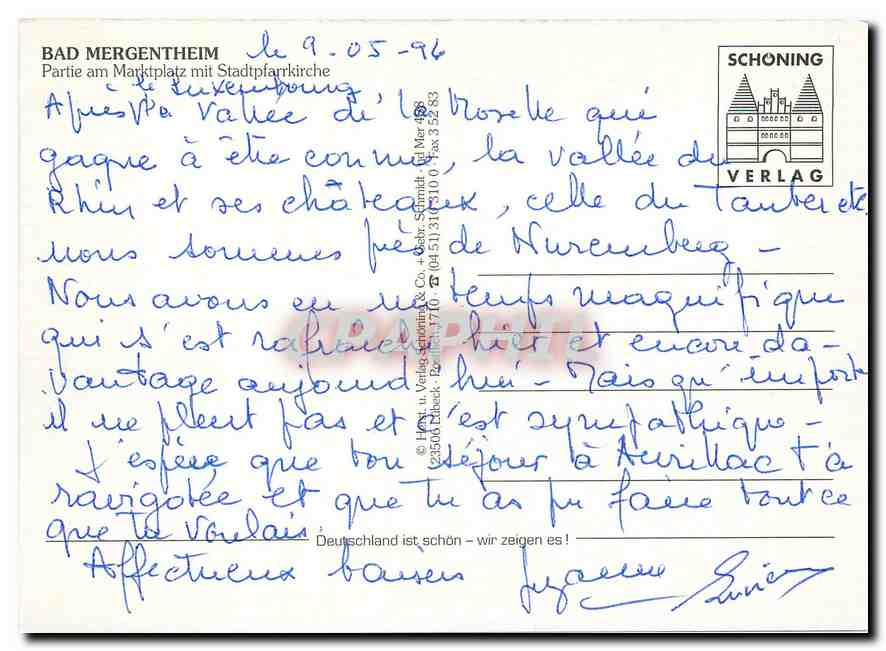 BAD MERGENTHEIM
le 9-05-96
Partie am Marktplatz mit Stadtpfarrkirche
SCHÖNING
VERLAG
le Luxembourg
Après la Vallée de la Moselle qui
gagne à être connue, la vallée du
Rhin et ses châteaux, celle du Tauber etc
nous sommes près de Nuremberg -
Nous avons eu un temps magnifique
qui s'est rafraichi hier et encore da-
vantage aujourd'hui - Mais qu'importe
il ne pleut pas et c'est sympathique -
J'espère que ton séjour à Aurillac t'a
ravigotée et que tu as pu faire tout ce
que tu voulais.
Deutschland ist schön – wir zeigen es!
Affectueux baisers Suzanne
© Horst. u. Verlag Schöning & Co. + Gebr. Schmidt · Bd Mer
23506 Lübeck · Postfach 1710 · ☎ (04 51) 310 310 · Fax 3 52 83